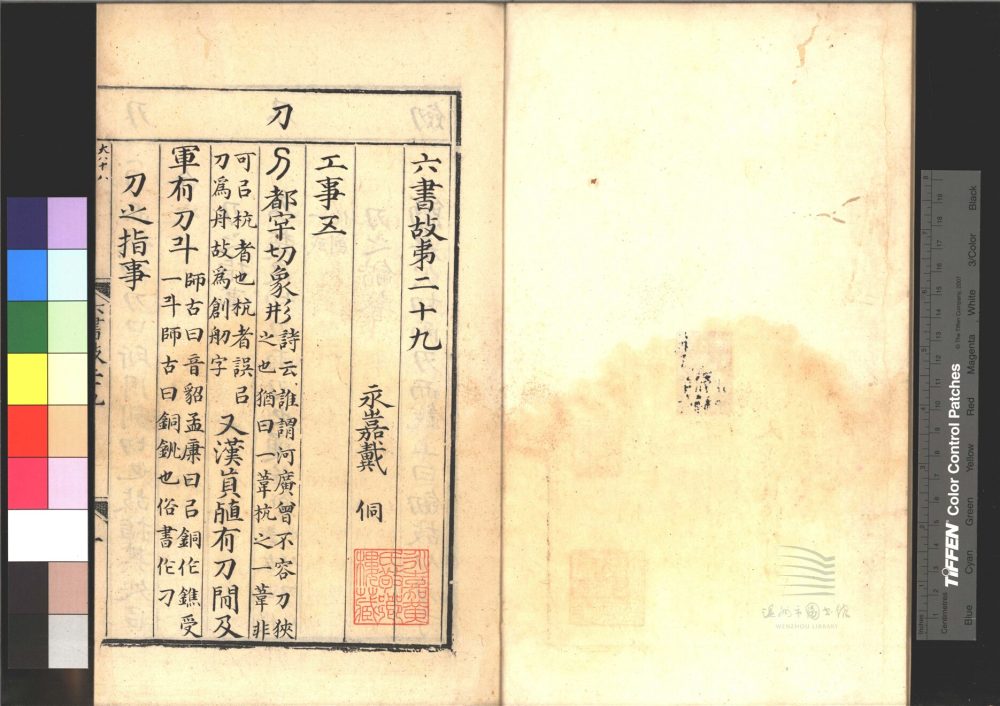 刀
六書故弟二十九
永嘉戴 侗
工事五
都牢切象形詩云誰謂河廣曾不容刀狹
之也猶曰一葦杭之一葦非
可㠯杭者也杭者誤㠯
刀爲舟故爲創舠字 又漢貨殖有刀閒及
軍有刀斗師古曰音貂孟康曰㠯銅作鐎受
一斗師古曰銅銚也俗書作刁
刀之指事
六書故二十九
一
大八十八
溫州市圖書館
WENZHOU LIBRARY
TIFFEN Color Control Patches
© The Tiffen Company, 2007
Inches
Centimetres
Blue
Cyan
Green
Yellow
Red
Magenta
White
3/Color
Black